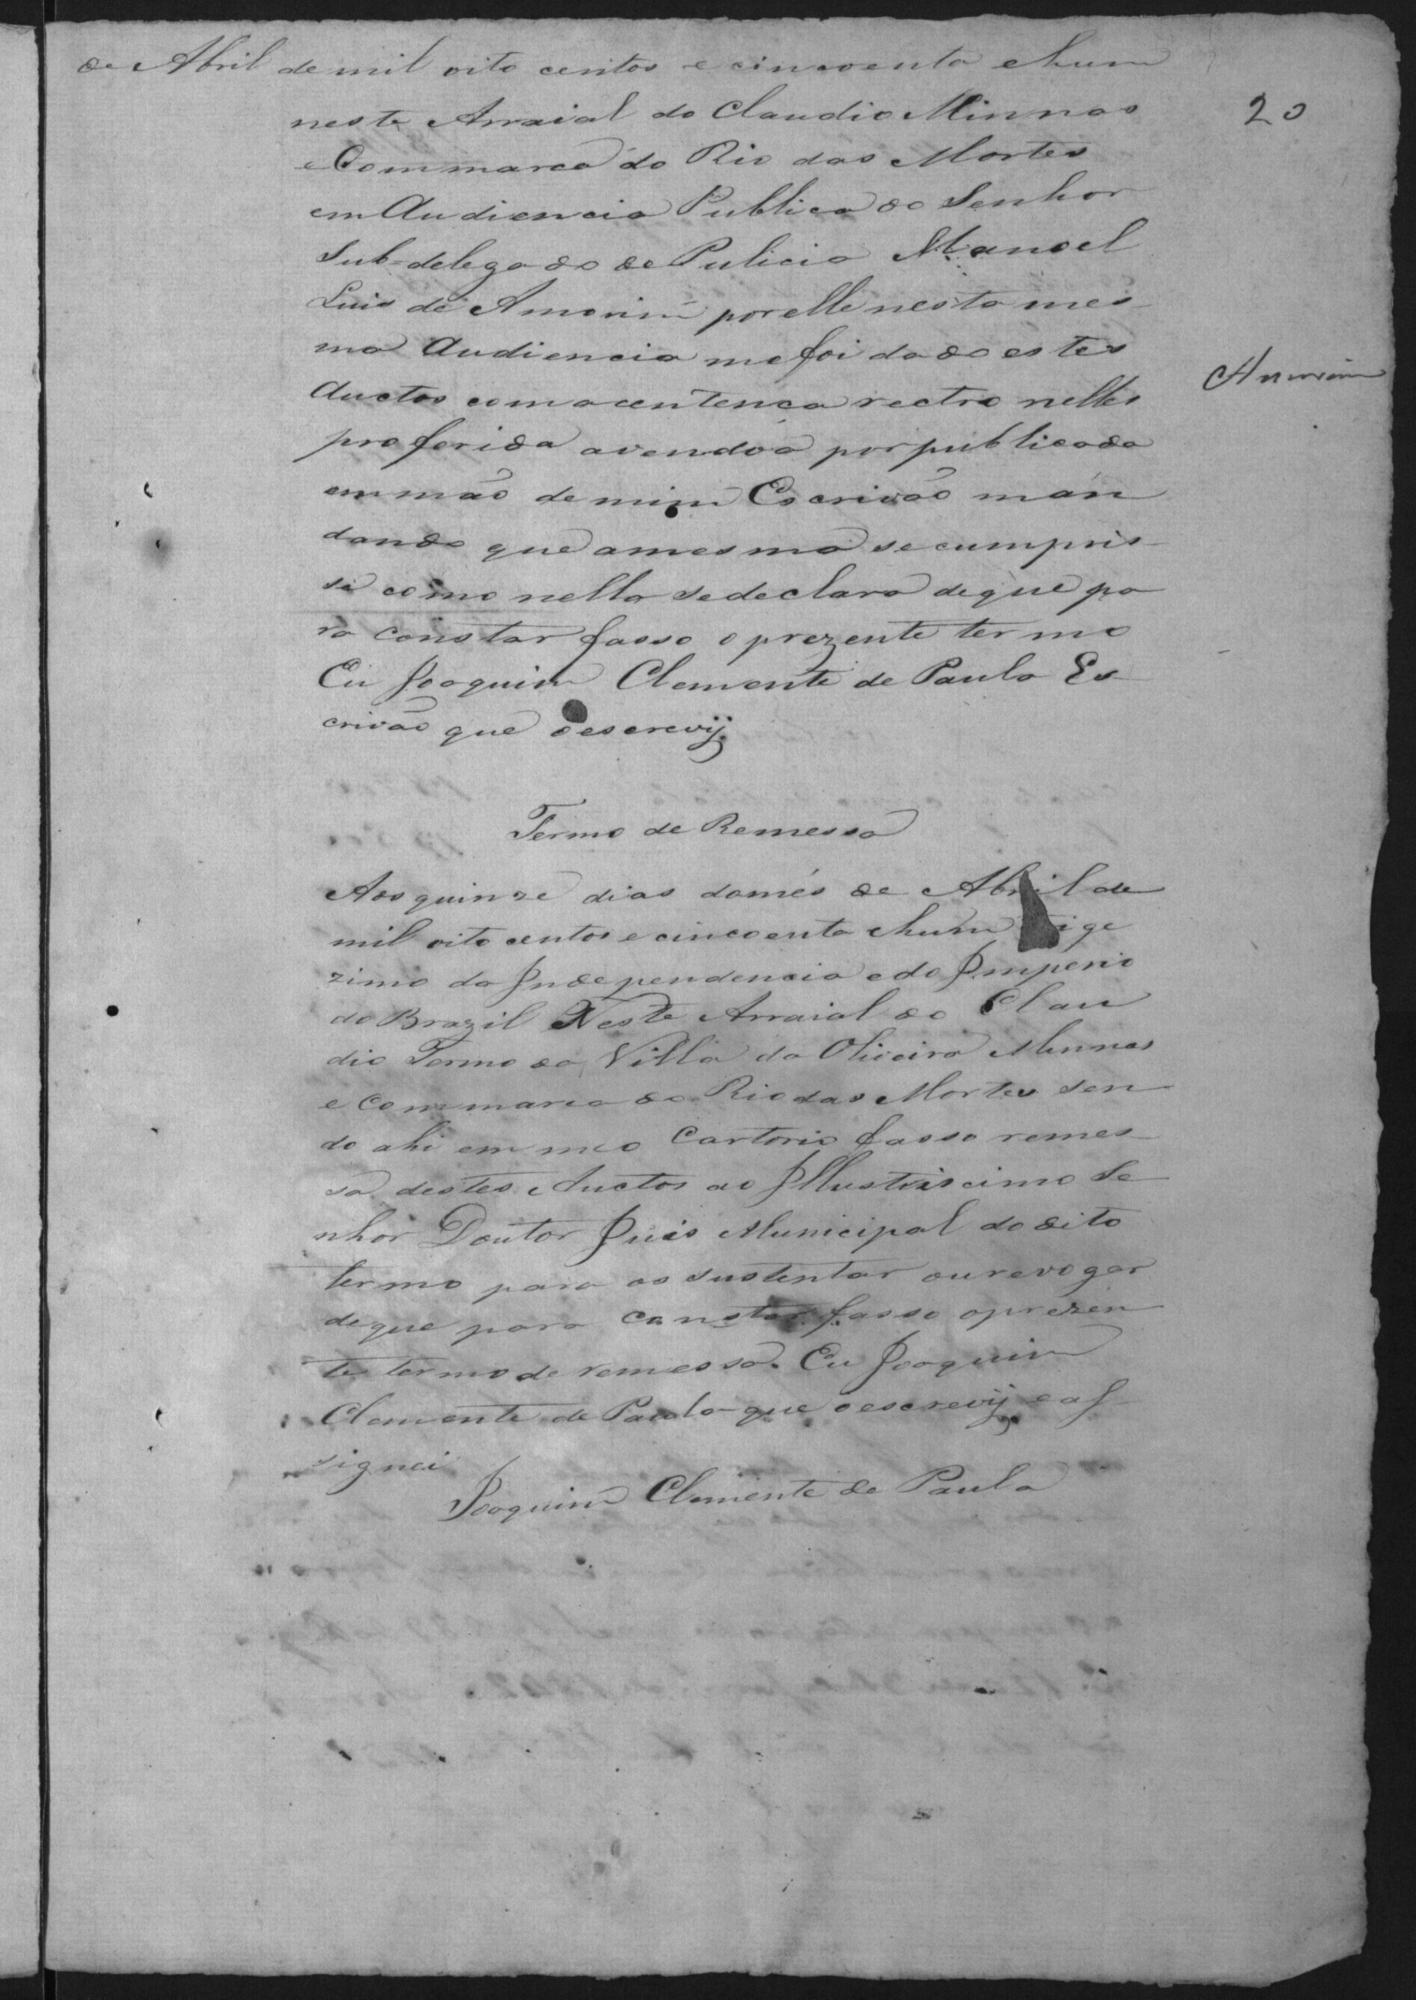 de Abril de mil oito centos e cincoenta ehum
20
neste Arraial do Claudio Minnas
eCommarca do Rio das Mortes
em Audiencia Publica do Senhor
Sub-delegado de Pulicia Manoel
Luis de Amorim por elle nesta mes
ma Audiencia me foi dado estes
Amorim
Auctos com acentenca rectro nelles
proferida avendoa por publicada
em mão de mim Escrivão man
dando que amesma se cumpris
se como nella sedeclara deque pa
ra constar fasso o prezente termo
Eu Joaquim Clemente de Paula Es
crivão que oescrevij
Termo de Remessa
Aos quinze dias domês de Abril de
mil oito centos e cincoenta ehum Vige
zimo da Independencia e do Imperio
do Brazil Neste Arraial do Clau
dio Termo da Villa da Oliveira Minnas
e Commarca do Rio das Mortes sen
do ahi em meo Cartorio fasso remes
sa destes Auctos ao Illustriscimo Se
nhor Doutor Juis Municipal do dito
termo para os sustentar ou revogar
deque para constar fasso oprezen
te termo de remessa. Eu Joaquim
Clemente de Paula que oescrevij e as
signei
Joaquim Clemente de Paula